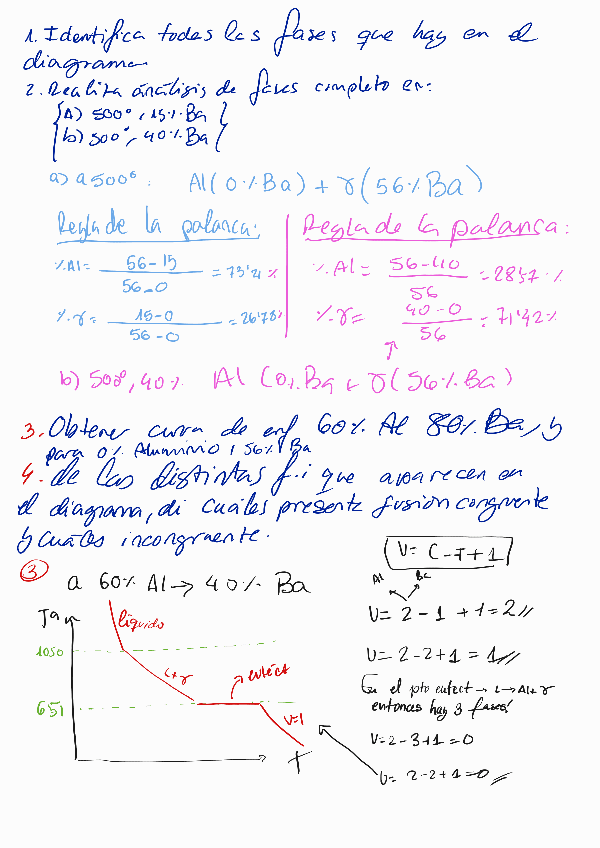 1. Identifica todas las fases que hay en el
diagrama
2. Realiza análisis de fases completo en:
a) 500°, 15% Ba
b) 500°, 40% Ba
a) a 500°: Al (0% Ba) + γ (56% Ba)
Regla de la palanca:
%Al = 56-15 / 56-0 = 73'21 %
%γ = 15-0 / 56-0 = 26'78%
Regla de la palanca:
%Al = 56-40 / 56 = 28'57 %
%γ = 40-0 / 56 = 71'42%
b) 500°, 40% Al (0% Ba + γ (56% Ba)
3. Obtener curva de enf 60% Al 80% Ba, y
para 0% Aluminio, 56% Ba
4. de las distintas f.i que aparecen en
el diagrama, di cuáles presente fusión congruente
y cuáles incongruente.
③ a 60% Al → 40% Ba
Tª
líquido
1050
L+γ
eutéct
651
V=1
t
V = C - F + 1
Al Ba
V = 2 - 1 + 1 = 2//
V = 2 - 2 + 1 = 1//
En el pto eutect → L → Al + γ
entonces hay 3 fases!
V = 2 - 3 + 1 = 0
V = 2 - 2 + 1 = 0//